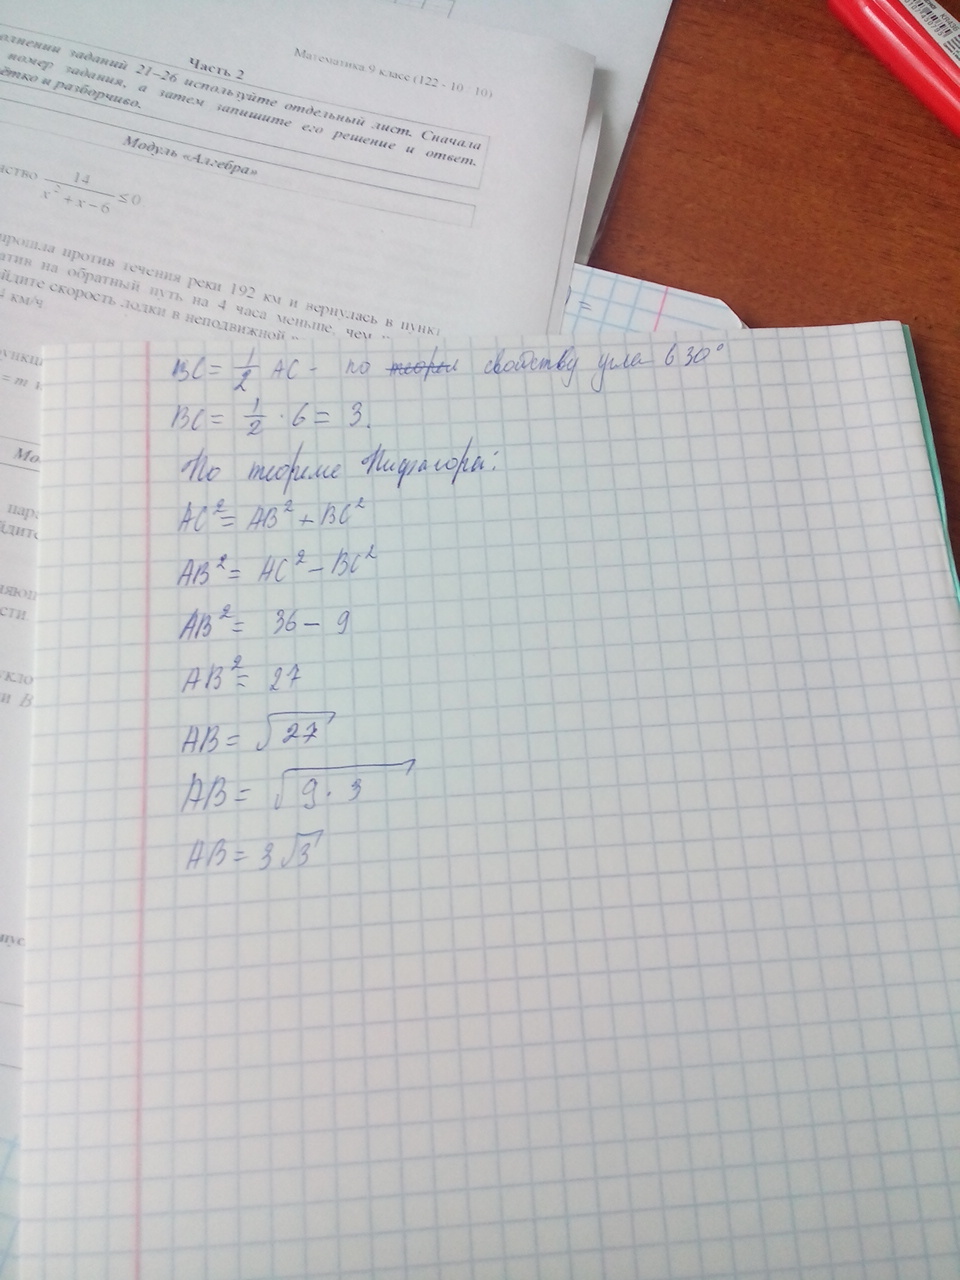 Математика 9 класс (122 - 10 10)
Часть 2
заданий 21–26 используйте отдельный лист. Сначала
номер задания, а затем запишите его решение и ответ.
и разборчиво.
Модуль «Алгебра»
14
x² + x − 6
≤ 0
против течения реки 192 км и вернулась в пункт
на обратный путь на 4 часа меньше, чем
скорость лодки в неподвижной
км/ч
= m
BC = 1/2 AC - по свойству угла в 30°
BC = 1/2 · 6 = 3.
По теореме Пифагора:
AC² = AB² + BC²
AB² = AC² – BC²
AB² = 36 – 9
AB² = 27
AB = √27
AB = √9 · 3
AB = 3√3